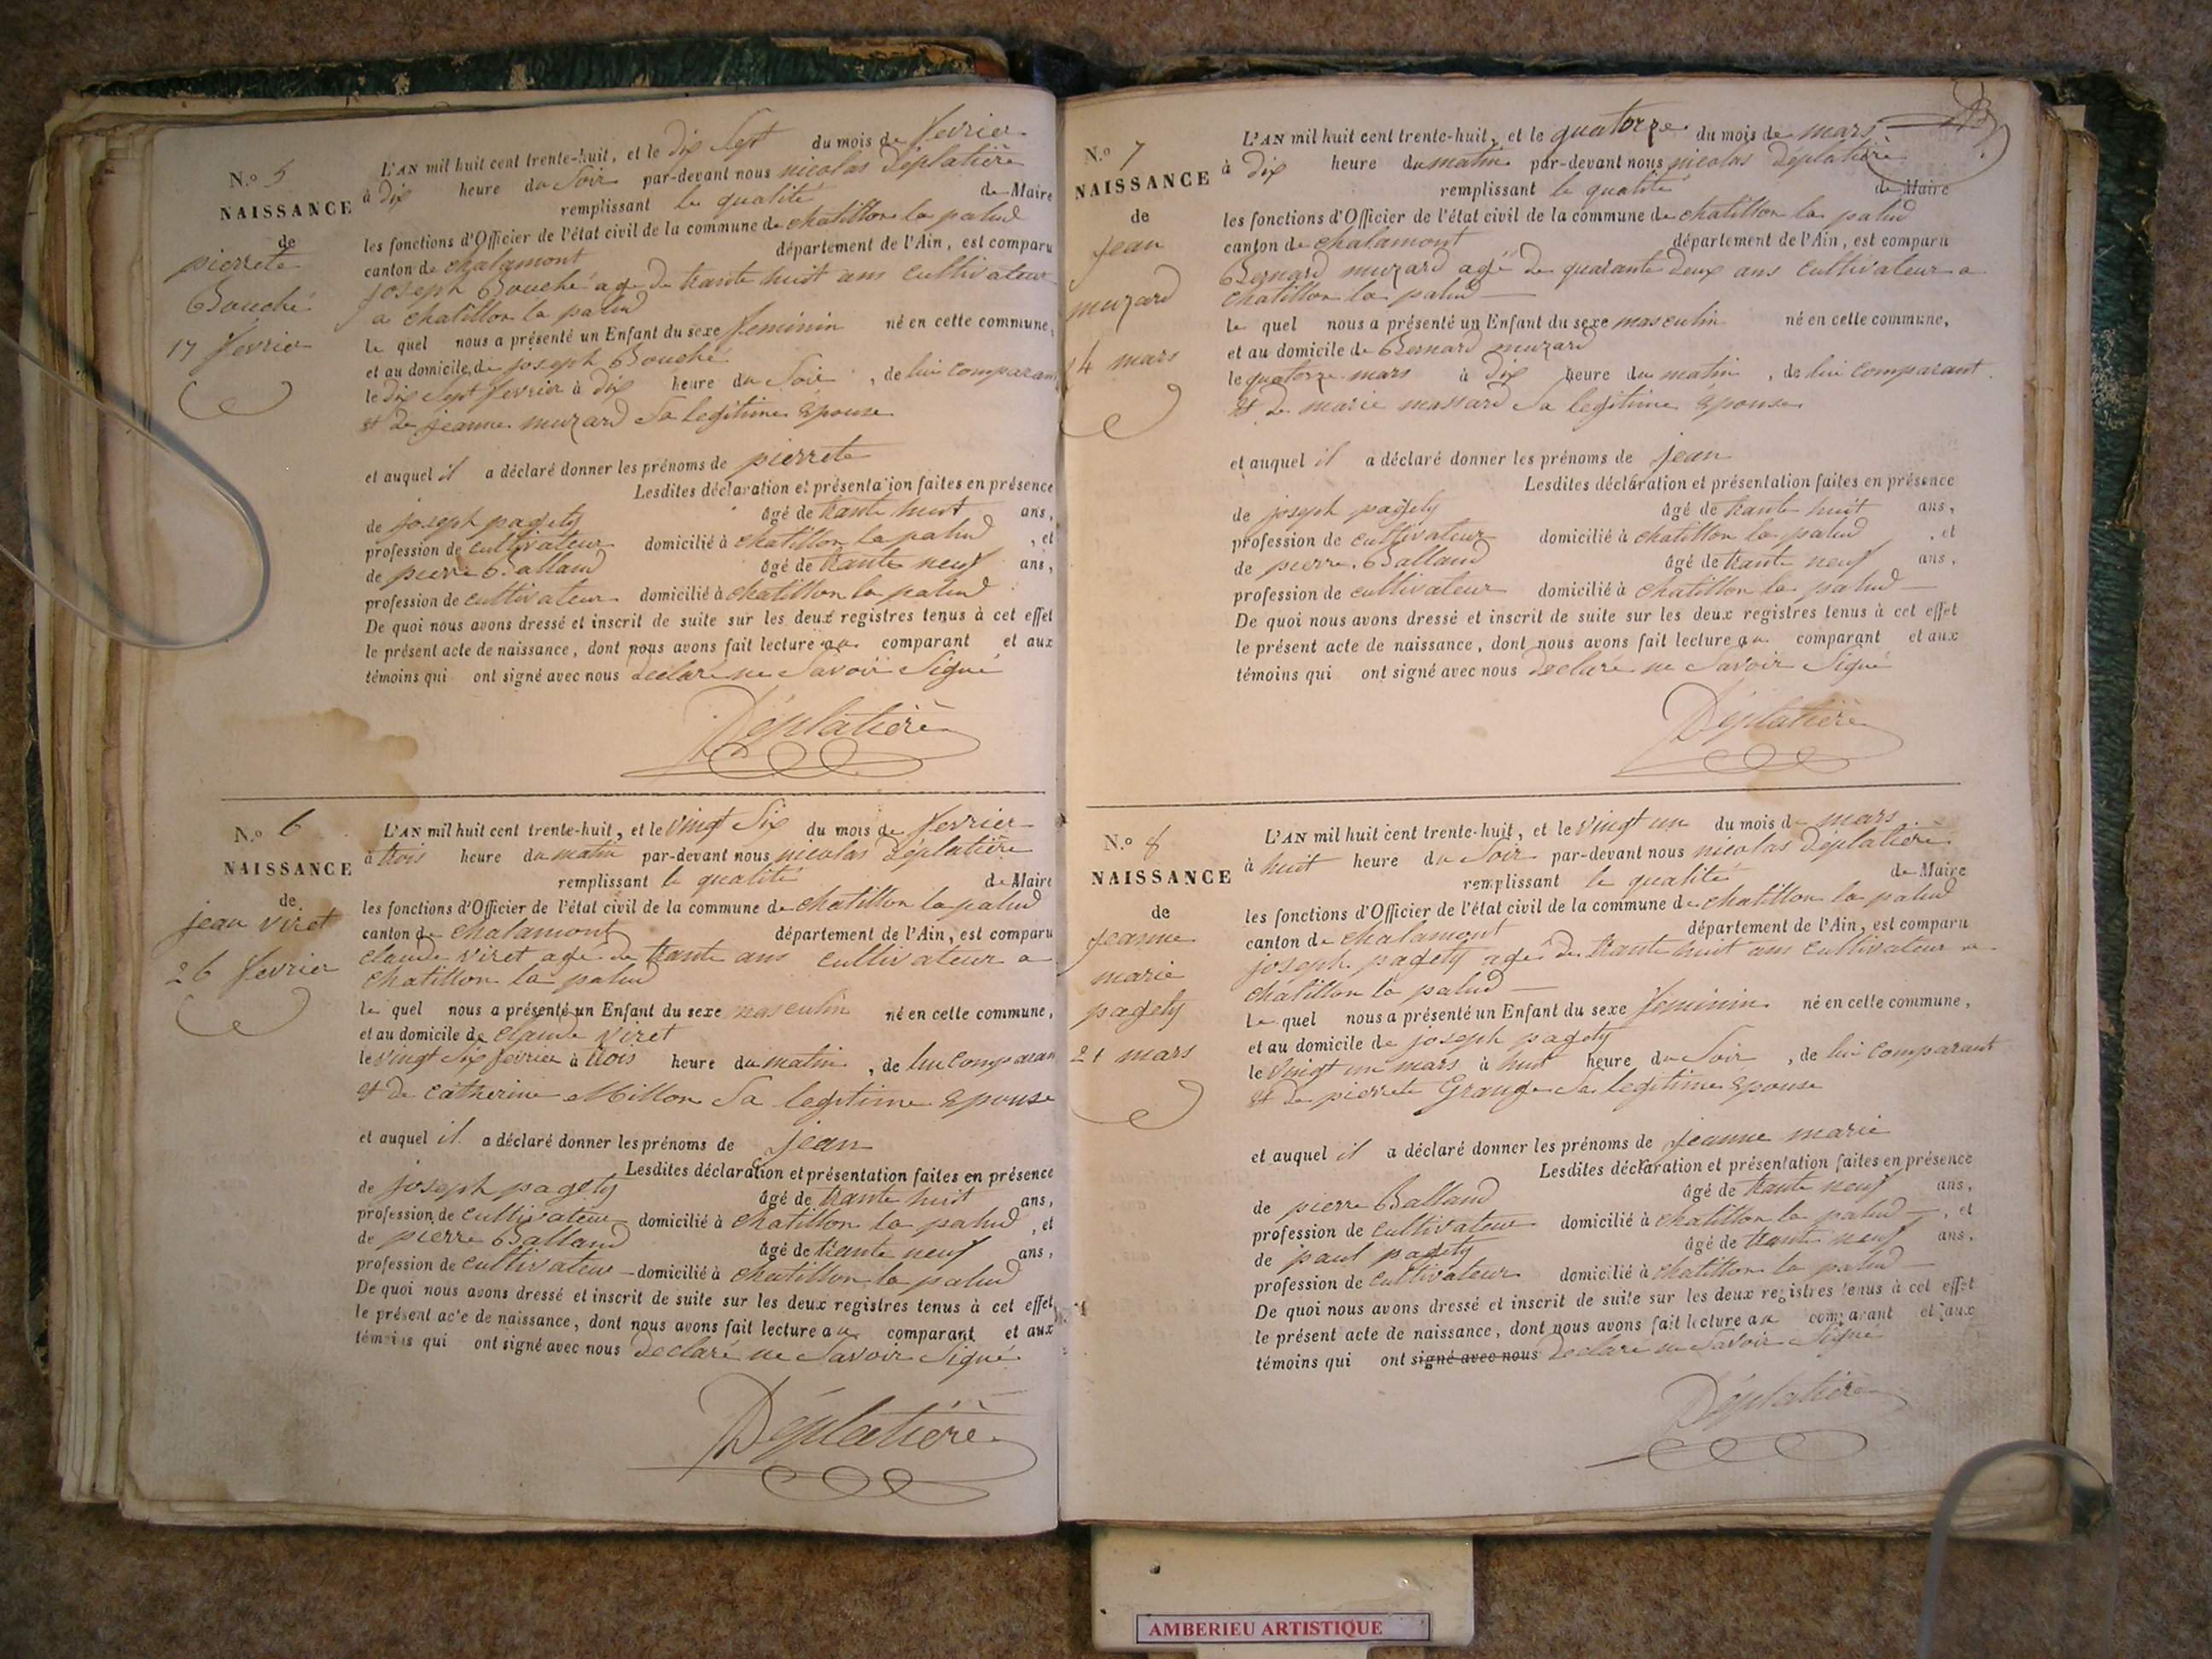 N.o 5
NAISSANCE
de
pierrete
Bouché
17 fevrier
L'AN mil huit cent trente-huit, et le dix Sept du mois de fevrier
à dix heure du Soir par-devant nous nicolas Déplatière
remplissant le qualité de Maire
les fonctions d'Officier de l'état civil de la commune de chatillon la palud
canton de chalamont département de l'Ain, est comparu
joseph Bouché age de trante huit ans cultivateur
a chatillon la palud
le quel nous a présenté un Enfant du sexe feminin né en cette commune,
et au domicile de joseph Bouché
le dix Sept fevrier à dix heure du Soir, de lui comparan
et de jeanne muzard Sa legitime Epouse
et auquel il a déclaré donner les prénoms de pierrete
Lesdites déclaration et présentation faites en présence
de joseph pagety âgé de trante huit ans,
profession de cultivateur domicilié à chatillon la palud, et
de pierre Balland âgé de trante neuf ans,
profession de cultivateur domicilié à chatillon la palud
De quoi nous avons dressé et inscrit de suite sur les deux registres tenus à cet effet
le présent acte de naissance, dont nous avons fait lecture au comparant et aux
témoins qui ont signé avec nous declaré ne Savoir Signé
Déplatière
N.o 6
NAISSANCE
de
jean viret
26 fevrier
L'AN mil huit cent trente-huit, et le vingt Six du mois de fevrier
à trois heure du matin par-devant nous nicolas Déplatière
remplissant le qualité de Maire
les fonctions d'Officier de l'état civil de la commune de chatillon la palud
canton de chalamont département de l'Ain, est comparu
claude viret age de trante ans cultivateur a
chatillon la palud
le quel nous a présenté un Enfant du sexe masculin né en cette commune,
et au domicile de claude viret
le vingt Six fevrier à trois heure du matin, de lui comparan
et de catherine Millon Sa legitime Epouse
et auquel il a déclaré donner les prénoms de jean
Lesdites déclaration et présentation faites en présence
de joseph pagety âgé de trante huit ans,
profession de cultivateur domicilié à chatillon la palud, et
de pierre Balland âgé de trante neuf ans,
profession de cultivateur domicilié à chatillon la palud
De quoi nous avons dressé et inscrit de suite sur les deux registres tenus à cet effet
le présent acte de naissance, dont nous avons fait lecture au comparant et aux
témoins qui ont signé avec nous declaré ne Savoir Signé
Déplatière
N.o 7
NAISSANCE
de
jean
muzard
14 mars
L'AN mil huit cent trente-huit, et le quatorze du mois de mars
à dix heure du matin par-devant nous nicolas Déplatière
remplissant le qualité de Maire
les fonctions d'Officier de l'état civil de la commune de chatillon la palud
canton de chalamont département de l'Ain, est comparu
Bernard muzard agé de quarante deux ans cultivateur a
chatillon la palud
le quel nous a présenté un Enfant du sexe masculin né en cette commune,
et au domicile de Bernard muzard
le quatorze mars à dix heure du matin, de lui comparant
et de marie massard Sa legitime Epouse
et auquel il a déclaré donner les prénoms de jean
Lesdites déclaration et présentation faites en présence
de joseph pagety âgé de trante huit ans,
profession de cultivateur domicilié à chatillon la palud, et
de pierre Balland âgé de trante neuf ans,
profession de cultivateur domicilié à chatillon la palud
De quoi nous avons dressé et inscrit de suite sur les deux registres tenus à cet effet
le présent acte de naissance, dont nous avons fait lecture au comparant et aux
témoins qui ont signé avec nous declaré ne Savoir Signé
Déplatière
N.o 8
NAISSANCE
de
jeanne
marie
pagety
21 mars
L'AN mil huit cent trente-huit, et le vingt un du mois de mars
à huit heure du Soir par-devant nous nicolas Déplatière
remplissant le qualité de Maire
les fonctions d'Officier de l'état civil de la commune de chatillon la palud
canton de chalamont département de l'Ain, est comparu
joseph pagety agé de trante huit ans cultivateur a
chatillon la palud
le quel nous a présenté un Enfant du sexe feminin né en cette commune,
et au domicile de joseph pagety
le vingt un mars à huit heure du Soir, de lui comparant
et de pierrete Grange Sa legitime Epouse
et auquel il a déclaré donner les prénoms de jeanne marie
Lesdites déclaration et présentation faites en présence
de pierre Balland âgé de trante neuf ans,
profession de cultivateur domicilié à chatillon la palud, et
de paul pagety âgé de trante neuf ans,
profession de cultivateur domicilié à chatillon la palud
De quoi nous avons dressé et inscrit de suite sur les deux registres tenus à cet effet
le présent acte de naissance, dont nous avons fait lecture au comparant et aux
témoins qui ont signé avec nous declaré ne Savoir Signé
Déplatière
AMBERIEU ARTISTIQUE